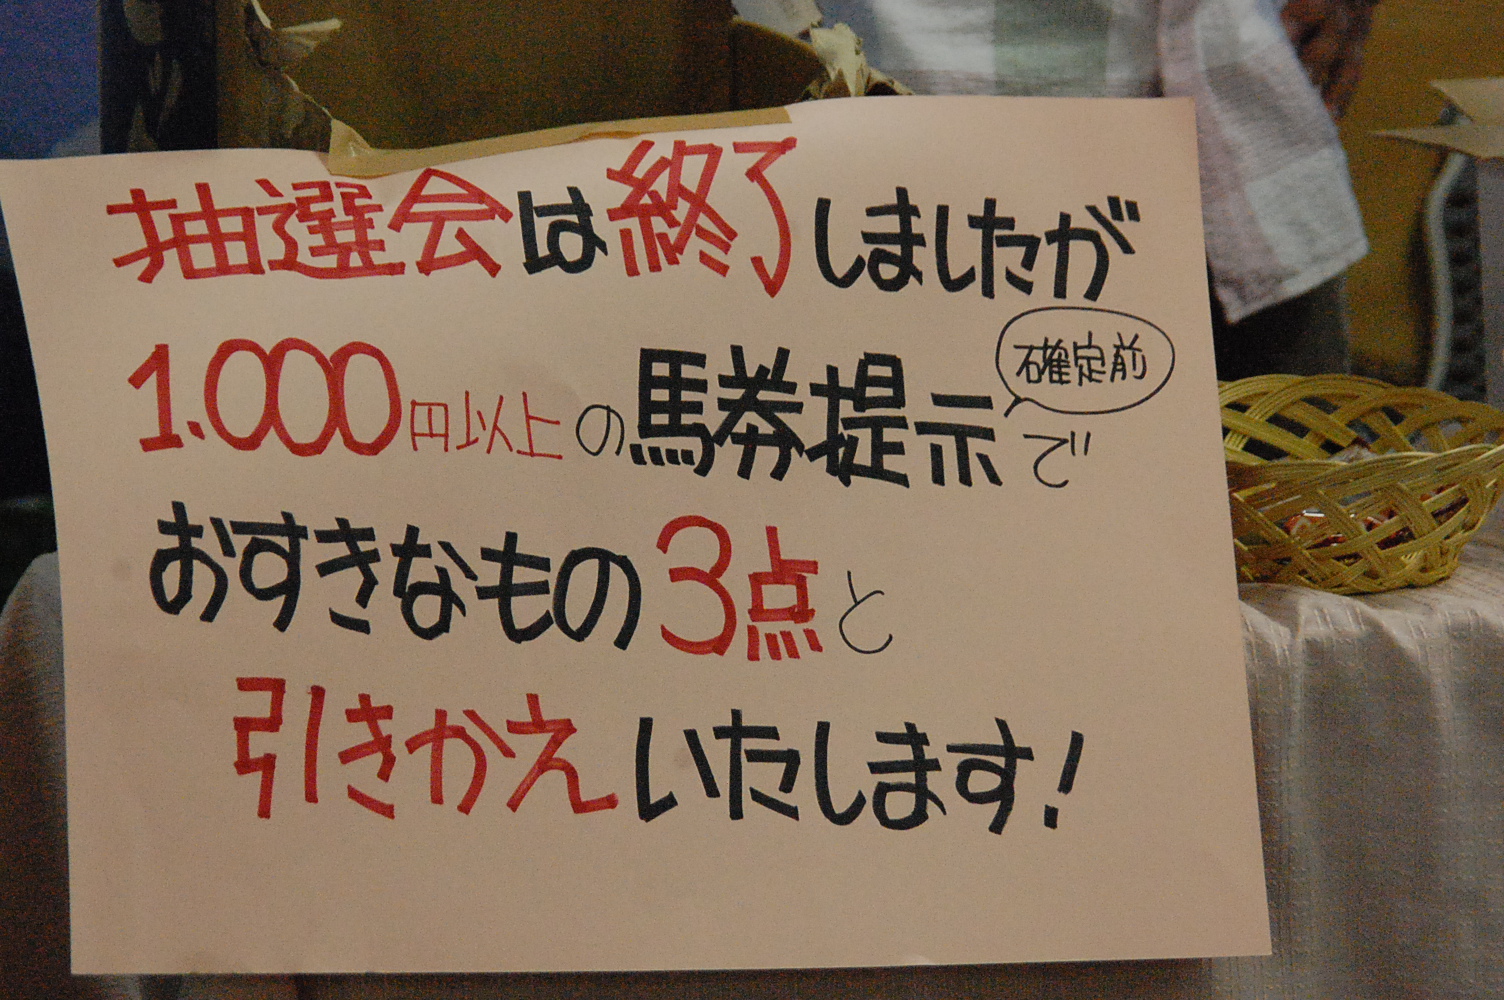 抽選会は終了しましたが
1.000円以上の馬券提示で
確定前
おすきなもの3点と
引きかえいたします!